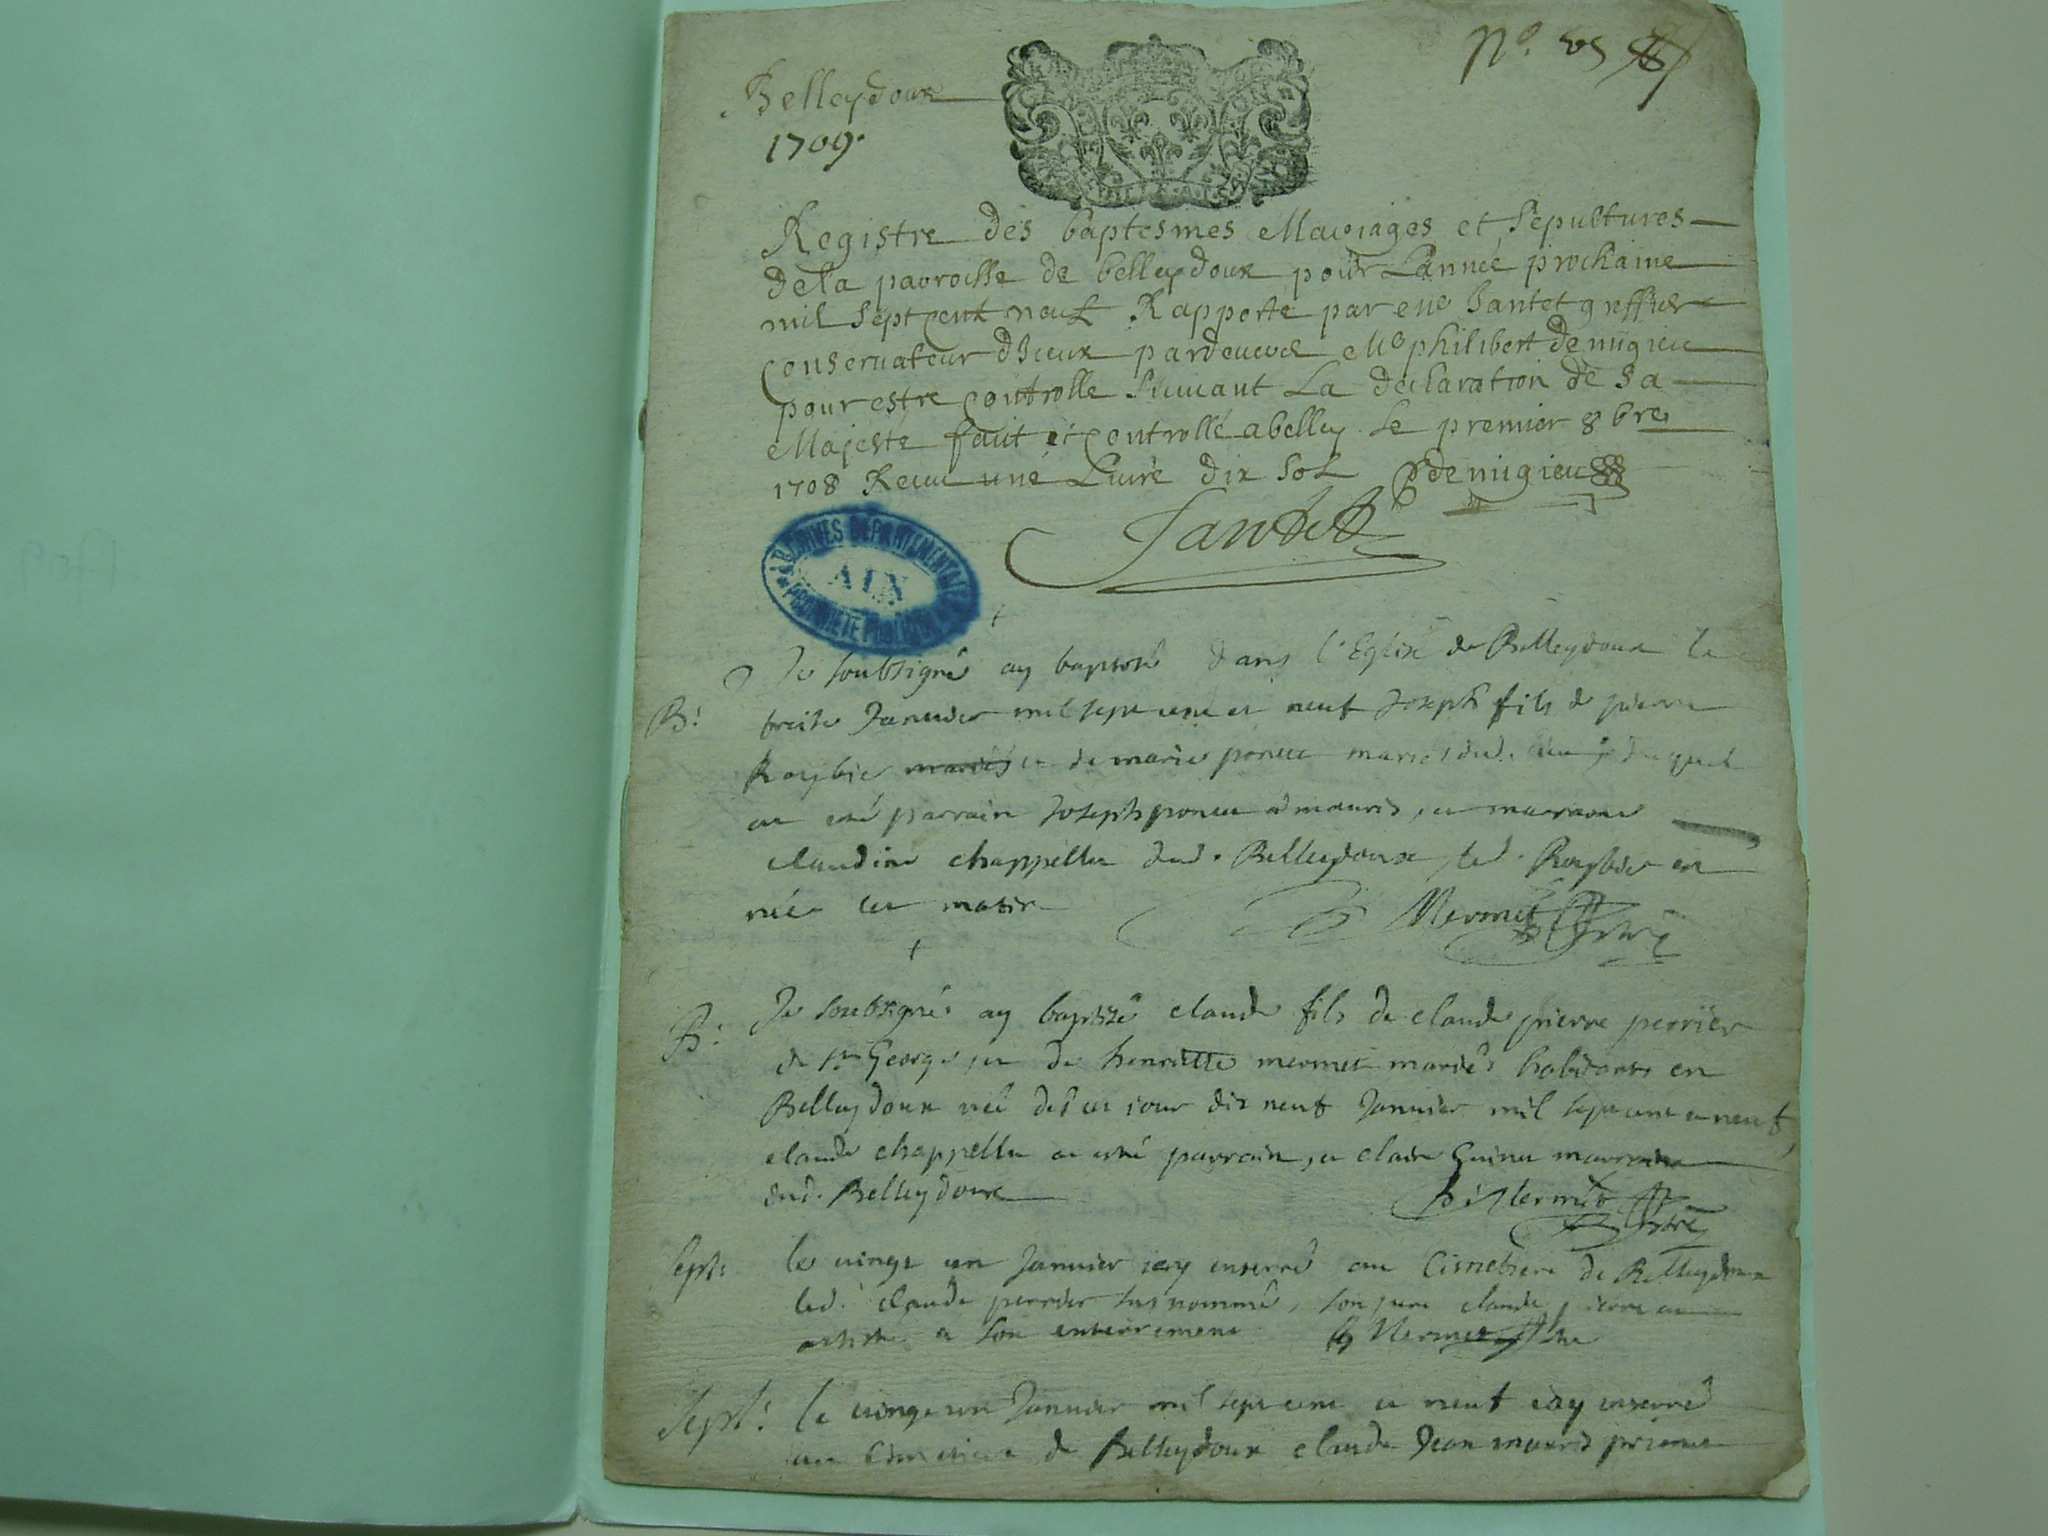 Belleydoux
1709.
N.o
Registre des baptesmes Mariages et sepultures
de la parroisse de belleydoux pour Lannée prochaine
mil sept cent neuf Rapporté par Me Jantet greffier
conservateur diceux pardevers Me philibert demigieu
pour estre controlle suivant La declaration de sa
Majesté fait et controllé a belley Le premier 8bre
1708 Receu une Livre dix sol demigieu
Jantet
ARCHIVES DEPARTEMENTALES
AIN
PROPRIETE PUBLIQUE
Je soubsigné ay baptisé dans l'Eglise de Belleydoux le
B:
treize Janvier mil sept cent et neuf Joseph fils de pierre
Roybier mariés et de marie poncet mariés dud. lieu duquel
a esté parrain Joseph poncet et marraine
claudine chappellu dud. Belleydoux, led. Roybier est
né ce matin
Mermet
B:
Je soubsigné ay baptisé claude fils de claude pierre perrier
de st George, et de henriette mermet mariés habitants en
Belleydoux né de ce jour dix neuf Janvier mil sept cent et neuf,
claude chappellu a esté parrain, et claire marraine
dud. Belleydoux
Mermet
Sept:
le vingt un Janvier j'ay enterré au Cimetiere de Belleydoux
led. claude perrier susnommé, son pere claude pierre a
assisté a son enterrement Mermet
Sept:
le vingt un Janvier mil sept cent et neuf j'ay enterré
au Cimetiere de Belleydoux claude Jean